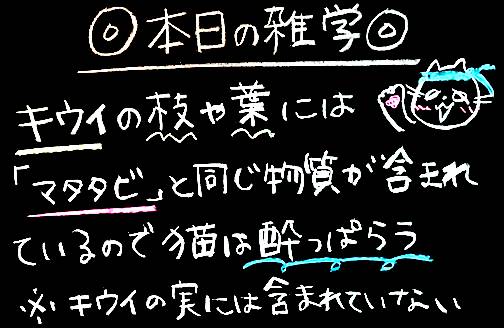 ◎本日の雑学◎
キウイの枝や葉には
「マタタビ」と同じ物質が含まれ
ているので猫は酔っぱらう
※キウイの実には含まれていない